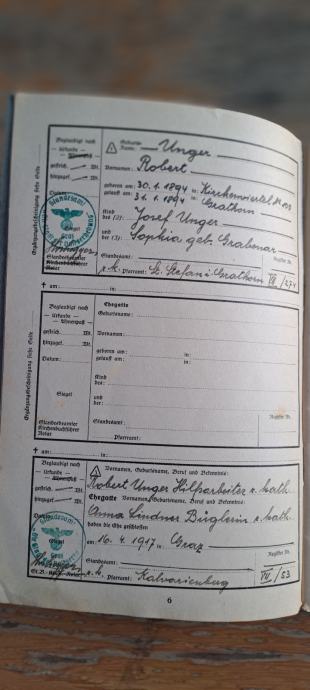 Beglaubigt nach
— Urkunde —
— Ahnenpaß —
gestrich. Wt.
hinzugef. Wt.
Datum:
Standesamt
Graz
Siegel
Standesbeamter
Kirchenbuchführer
Notar
Geburts-
Name: Unger
Vornamen: Robert
geboren am: 30.1.1894 in: Kirchenviertel Nr
getauft am: 31.1.1894 in: Gratkorn
Kind
des (2): Josef Unger
und
der (3): Sophia geb. Grabenar
Standesamt: Register Nr.
r.k. Pfarramt: St. Stefan i Gratkorn VII /274
† am: in:
Beglaubigt nach
— Urkunde —
— Ahnenpaß —
gestrich. Wt.
hinzugef. Wt.
Datum:
Siegel
Standesbeamter
Kirchenbuchführer
Notar
Ehegatte
Geburtsname:
Vornamen:
geboren am: in:
getauft am: in:
Kind
des:
und
der:
Standesamt: Register Nr.
Pfarramt:
† am: in:
Beglaubigt nach
— Urkunde —
— Ahnenpaß —
gestrich. Wt.
hinzugef. Wt.
Siegel
Vornamen, Geburtsname, Beruf und Bekenntnis:
Robert Unger Hilfsarbeiter r. kath.
Ehegatte Vornamen, Geburtsname, Beruf und Bekenntnis:
Anna Lindner Büglerin r. kath.
haben die Ehe geschlossen
am: 16.4.1917 in: Graz
Standesamt: Register Nr.
r.k. Pfarramt: Kalvarienberg VII /53
6